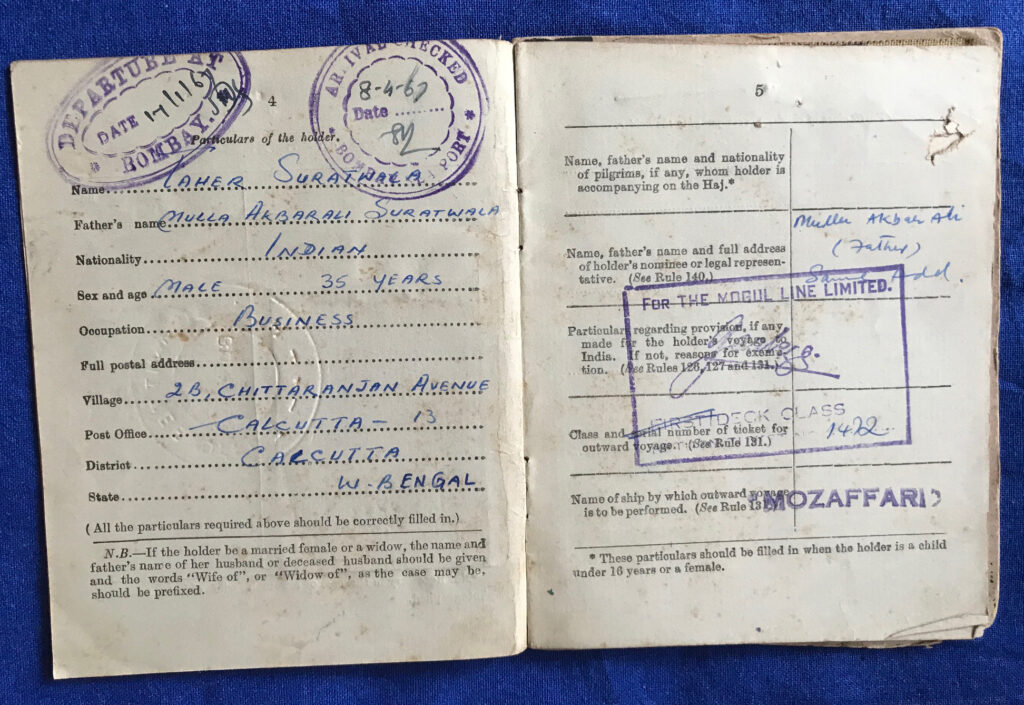 DEPARTURE AT
DATE
BOMBAY.
ARRIVAL CHECKED
8-4-67
Date
PORT
4
Particulars of the holder.
Name TAHER SURATWALA
Father's name MULLA AKBARALI SURATWALA
Nationality INDIAN
Sex and age MALE 35 YEARS
Occupation BUSINESS
Full postal address
Village 2B, CHITTARANJAN AVENUE
Post Office CALCUTTA - 13
District CALCUTTA
State W. BENGAL
(All the particulars required above should be correctly filled in.)
N.B.—If the holder be a married female or a widow, the name and
father's name of her husband or deceased husband should be given
and the words "Wife of", or "Widow of", as the case may be,
should be prefixed.
5
Name, father's name and nationality
of pilgrims, if any, whom holder is
accompanying on the Haj.*
Name, father's name and full address
of holder's nominee or legal represen-
tative. (See Rule 140.)
Mulla Akbar Ali
(Father)
FOR THE MOGUL LINE LIMITED.
Particulars regarding provision, if any
made for the holder's voyage to
India. If not, reasons for exemp-
tion. (See Rules 126, 127 and 131.)
FIRST/DECK CLASS
Class and serial number of ticket for
outward voyage. (See Rule 131.)
1422
Name of ship by which outward voyage
is to be performed. (See Rule 131.)
MOZAFFARI
* These particulars should be filled in when the holder is a child
under 16 years or a female.